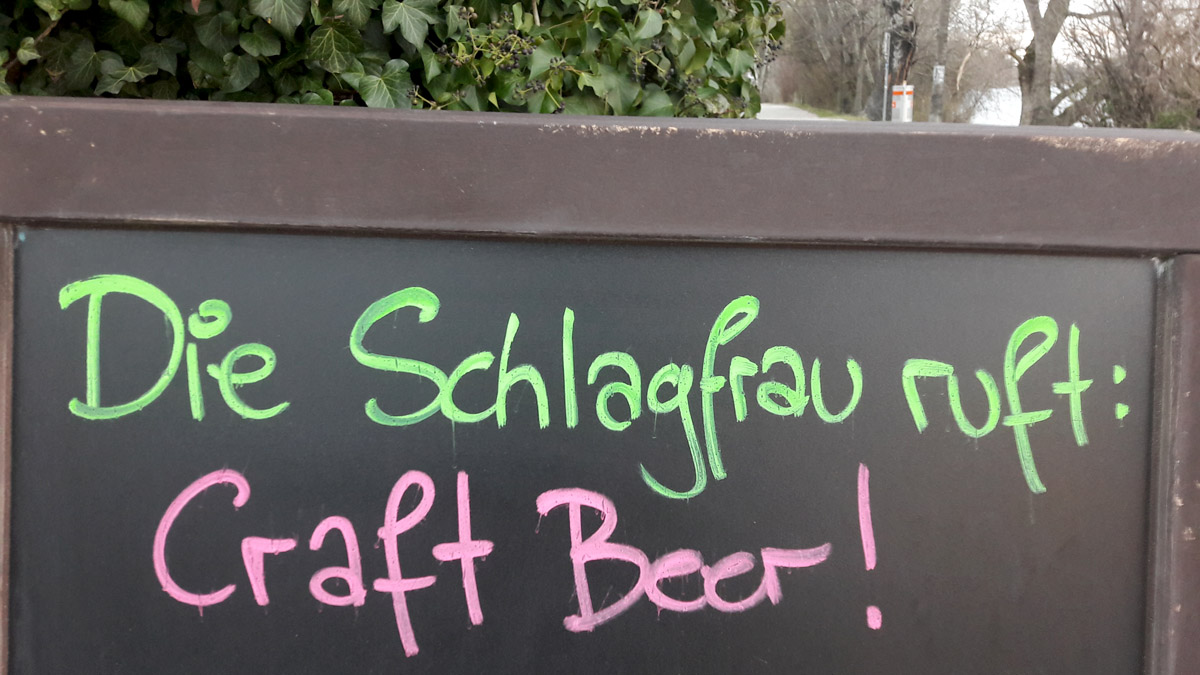 Die Schlagfrau ruft:
Craft Beer!